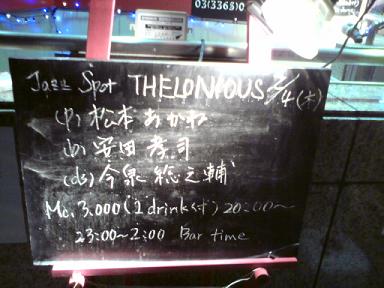 03(3365)0
Jazz Spot THELONIOUS 2/4(木)
(p) 松本あかね
(b) 安田孝司
(ds) 今泉総之輔
Mc. 3.000 (1drink付) 20:00〜
23:00〜2:00 Bar time